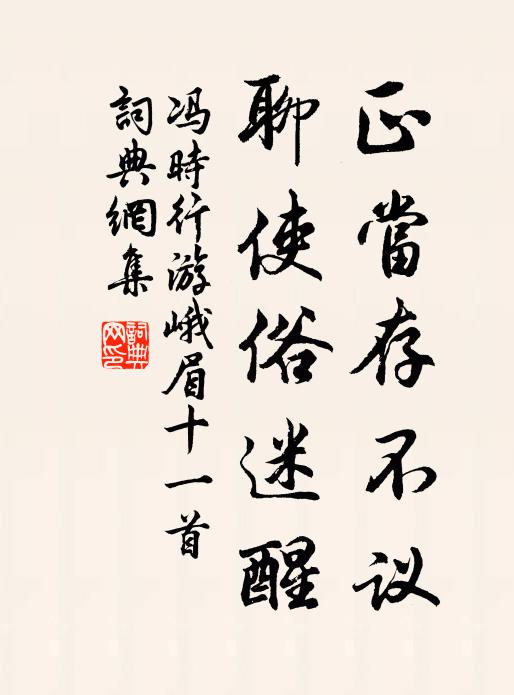 正當存不议
聊使俗迷醒
冯時行游峨眉十一首
詞典網集
詞典網印